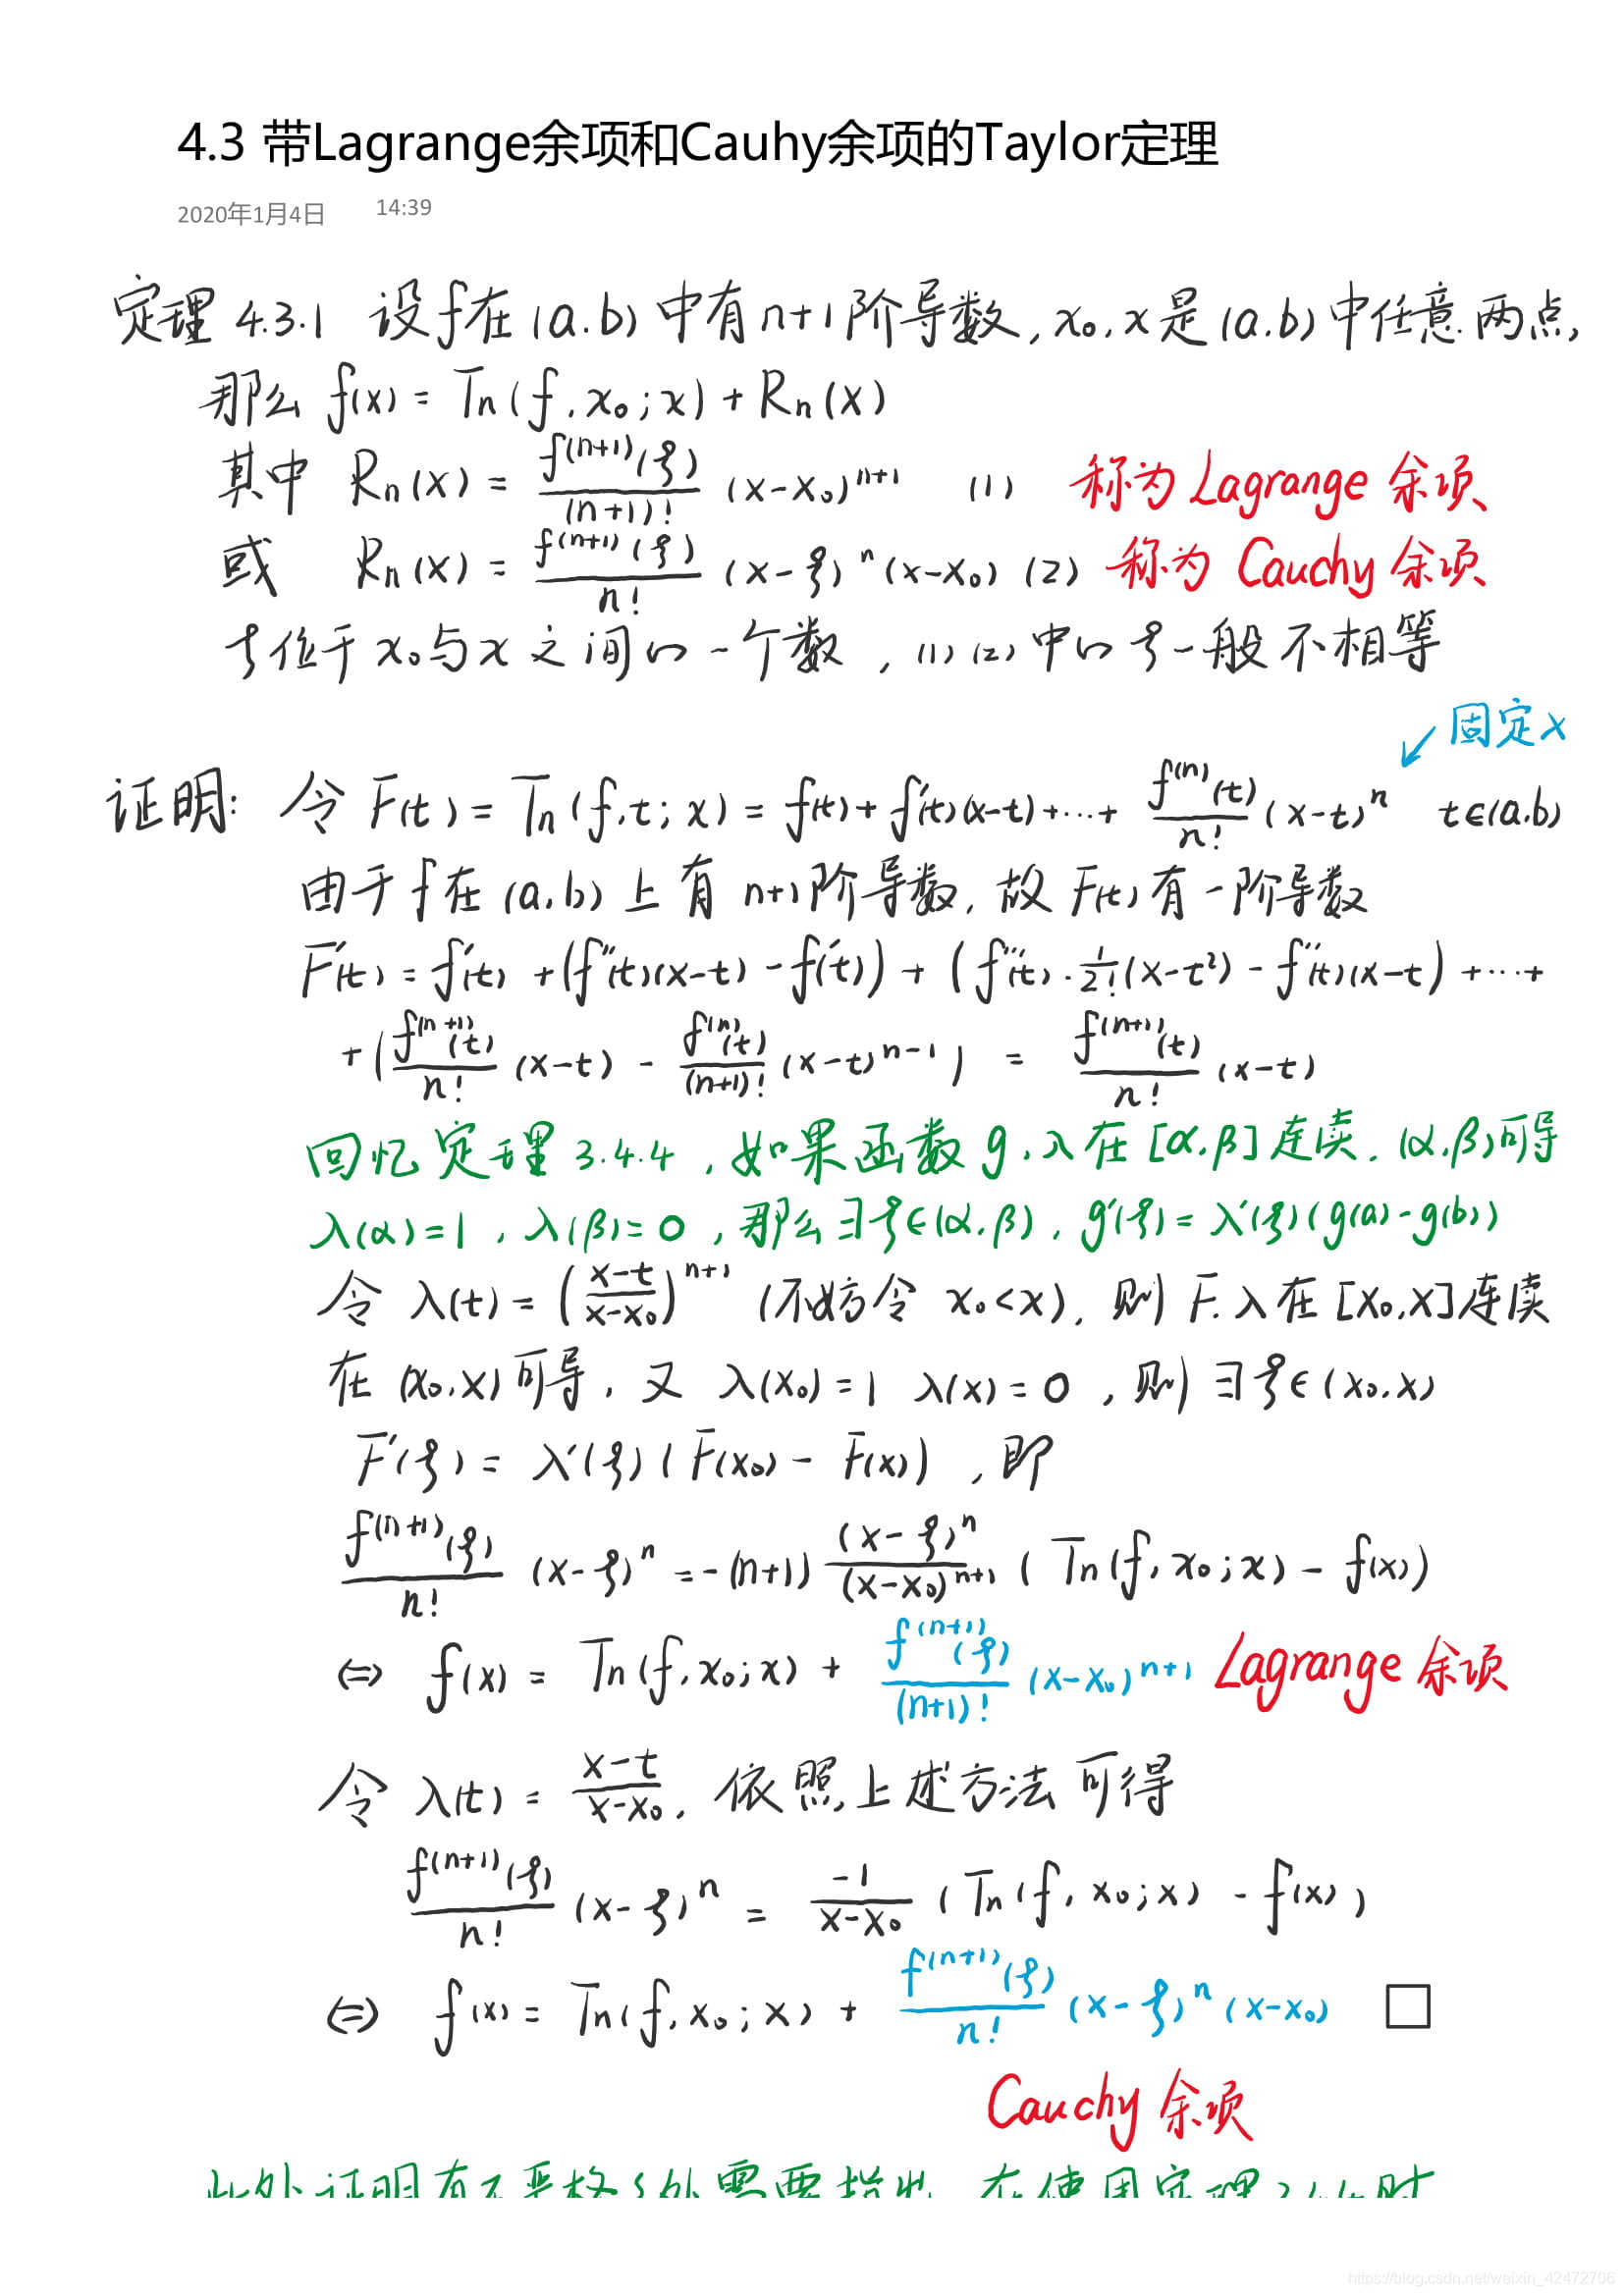 4.3 带Lagrange余项和Cauhy余项的Taylor定理
2020年1月4日 14:39
定理 4.3.1 设f在(a.b)中有n+1阶导数,x₀,x是(a.b)中任意两点,
那么 f(x) = Tn(f,x₀;x) + Rn(x)
其中 Rn(x) = f⁽ⁿ⁺¹⁾(ξ)/(n+1)! (x-x₀)ⁿ⁺¹ (1) 称为 Lagrange 余项
或 Rn(x) = f⁽ⁿ⁺¹⁾(ξ)/n! (x-ξ)ⁿ(x-x₀) (2) 称为 Cauchy 余项
ξ位于x₀与x之间的一个数,(1)(2)中的ξ一般不相等
固定x
证明: 令 F(t) = Tn(f,t;x) = f(t)+f′(t)(x-t)+···+ f⁽ⁿ⁾(t)/n! (x-t)ⁿ t∈(a.b)
由于f在(a,b)上有 n+1阶导数,故F(t)有一阶导数
F′(t) = f′(t) + (f″(t)(x-t) - f′(t)) + (f‴(t)·1/2!(x-t²) - f″(t)(x-t)) +···+
+ (f⁽ⁿ⁺¹⁾(t)/n! (x-t) - f⁽ⁿ⁾(t)/(n+1)! (x-t)ⁿ⁻¹) = f⁽ⁿ⁺¹⁾(t)/n! (x-t)
回忆定理 3.4.4,如果函数g,λ在[α.β]连续,(α.β)可导
λ(α)=1,λ(β)=0,那么∃ξ∈(α.β),g′(ξ)=λ′(ξ)(g(a)-g(b))
令 λ(t) = ((x-t)/(x-x₀))ⁿ⁺¹ (不妨令 x₀<x),则F.λ在[x₀,x]连续
在(x₀,x)可导,又 λ(x₀)=1 λ(x)=0,则∃ξ∈(x₀,x)
F′(ξ) = λ′(ξ)(F(x₀) - F(x)),即
f⁽ⁿ⁺¹⁾(ξ)/n! (x-ξ)ⁿ = -(n+1) (x-ξ)ⁿ/(x-x₀)ⁿ⁺¹ (Tn(f,x₀;x) - f(x))
⇔ f(x) = Tn(f,x₀;x) + f⁽ⁿ⁺¹⁾(ξ)/(n+1)! (x-x₀)ⁿ⁺¹ Lagrange 余项
令 λ(t) = (x-t)/(x-x₀),依照上述方法可得
f⁽ⁿ⁺¹⁾(ξ)/n! (x-ξ)ⁿ = -1/(x-x₀) (Tn(f,x₀;x) - f(x))
⇔ f(x) = Tn(f,x₀;x) + f⁽ⁿ⁺¹⁾(ξ)/n! (x-ξ)ⁿ(x-x₀) □
Cauchy 余项
此外证明有不严格之处需要指出
https://blog.csdn.net/weixin_42472706